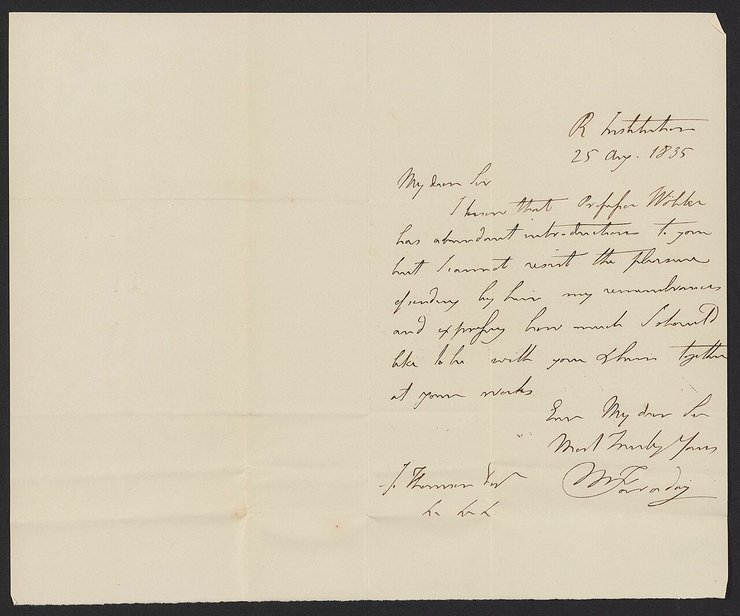 R Institution
25 Aug. 1835
My dear Sir
I know that Professor Wöhler
has abundant introduction to you
but I cannot resist the pleasure
of sending by him my remembrances
and expressing how much I should
like to be with you & him together
at your works
Ever My dear Sir
Most Truly Yours
M Faraday
J. Thomson Esq
&c &c &